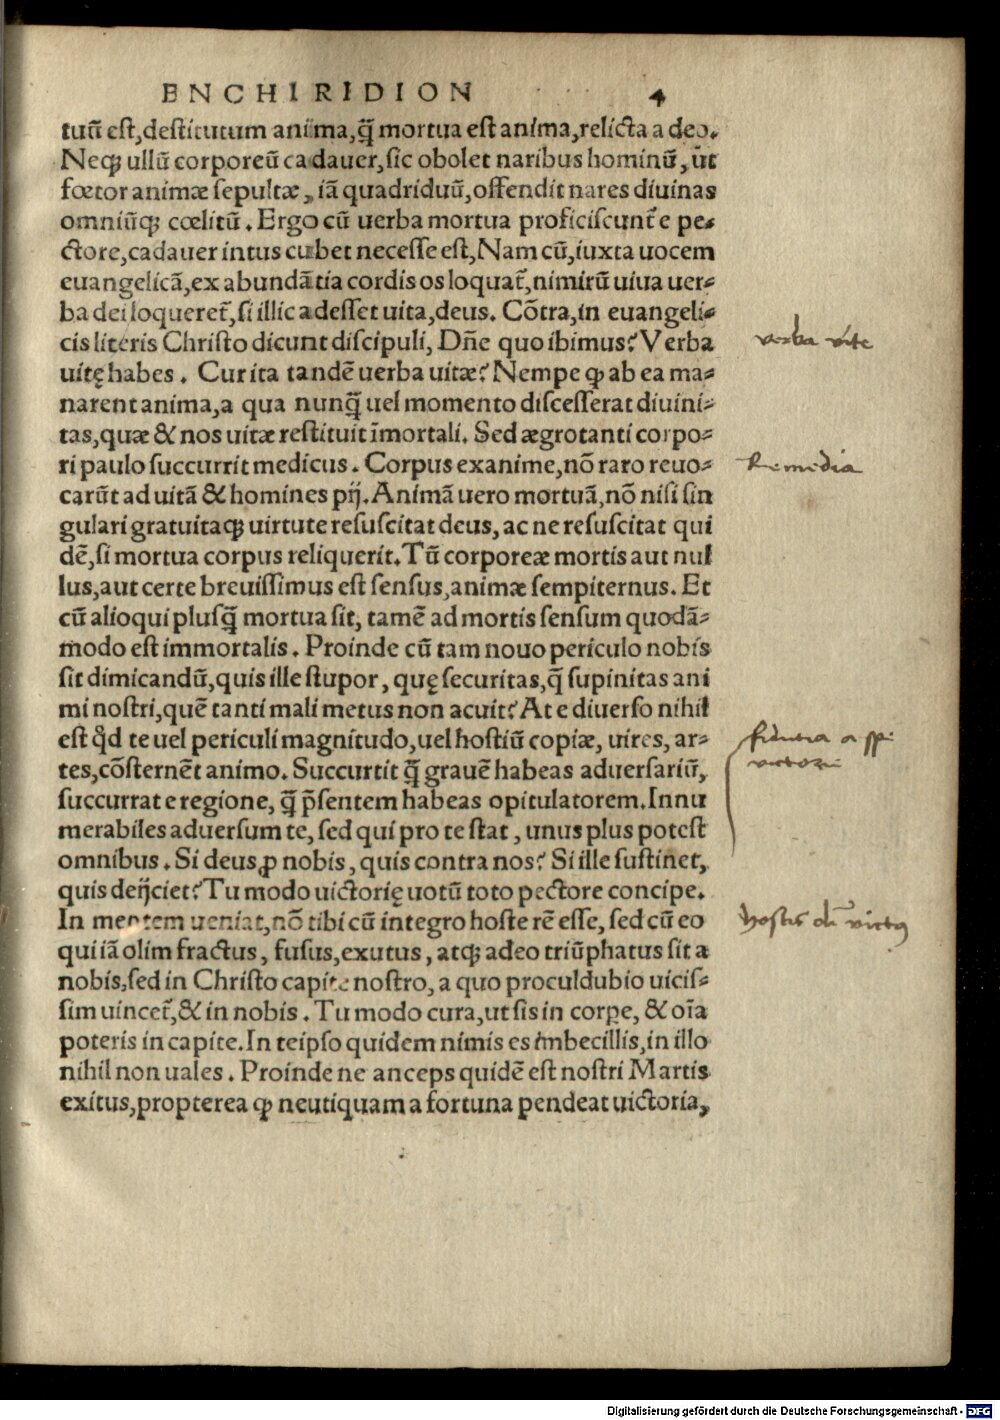 ENCHIRIDION 4
tuũ est, destitutum anima, q̃ mortua est anima, relicta a deo.
Neqꝫ ullũ corporeũ cadauer, sic obolet naribus hominũ, ut
fœtor animæ sepultæ, iã quadriduũ, offendit nares diuinas
omniũqꝫ cœlitũ. Ergo cũ uerba mortua proficiscunt̃ e pe-
ctore, cadauer intus cubet necesse est, Nam cũ, iuxta uocem
euangelicã, ex abundãtia cordis os loquat̃, nimirũ uiua uer-
ba dei loqueret̃, si illic adesset uita, deus. Cõtra, in euangeli-
cis literis Christo dicunt discipuli, Dñe quo ibimus? Verba
uitę habes. Cur ita tandẽ uerba uitæ? Nempe ꝙ ab ea ma-
narent anima, a qua nunq̃ uel momento discesserat diuini-
tas, quæ & nos uitæ restituit ĩmortali. Sed ægrotanti corpo-
ri paulo succurrit medicus. Corpus exanime, nõ raro reuo-
carũt ad uitã & homines pij. Animã uero mortuã, nõ nisi sin
gulari gratuitaqꝫ uirtute resuscitat deus, ac ne resuscitat qui
dẽ, si mortua corpus reliquerit. Tũ corporeæ mortis aut nul
lus, aut certe breuissimus est sensus, animæ sempiternus. Et
cũ alioqui plusq̃ mortua sit, tamẽ ad mortis sensum quodã-
modo est immortalis. Proinde cũ tam nouo periculo nobis
sit dimicandũ, quis ille stupor, quę securitas, q̃ supinitas ani
mi nostri, quẽ tanti mali metus non acuit? At e diuerso nihil
est qd te uel periculi magnitudo, uel hostiũ copiæ, uires, ar-
tes, cõsternẽt animo. Succurtit q̃ grauẽ habeas aduersariũ,
succurrat e regione, q̃ p̃sentem habeas opitulatorem. Innu
merabiles aduersum te, sed qui pro te stat, unus plus potest
omnibus. Si deus ꝓ nobis, quis contra nos? Si ille sustinet,
quis deijciet? Tu modo uictorię uotũ toto pectore concipe.
In mentem ueniat, nõ tibi cũ integro hoste rẽ esse, sed cũ eo
qui iã olim fractus, fusus, exutus, atqꝫ adeo triũphatus sit a
nobis, sed in Christo capite nostro, a quo proculdubio uicis-
sim uincet̃, & in nobis. Tu modo cura, ut sis in corpe, & oĩa
poteris in capite. In teipso quidem nimis es imbecillis, in illo
nihil non uales. Proinde ne anceps quidẽ est nostri Martis
exitus, propterea ꝙ neutiquam a fortuna pendeat uictoria,
verba vite
Remedia
Digitalisierung gefördert durch die Deutsche Forschungsgemeinschaft - DFG